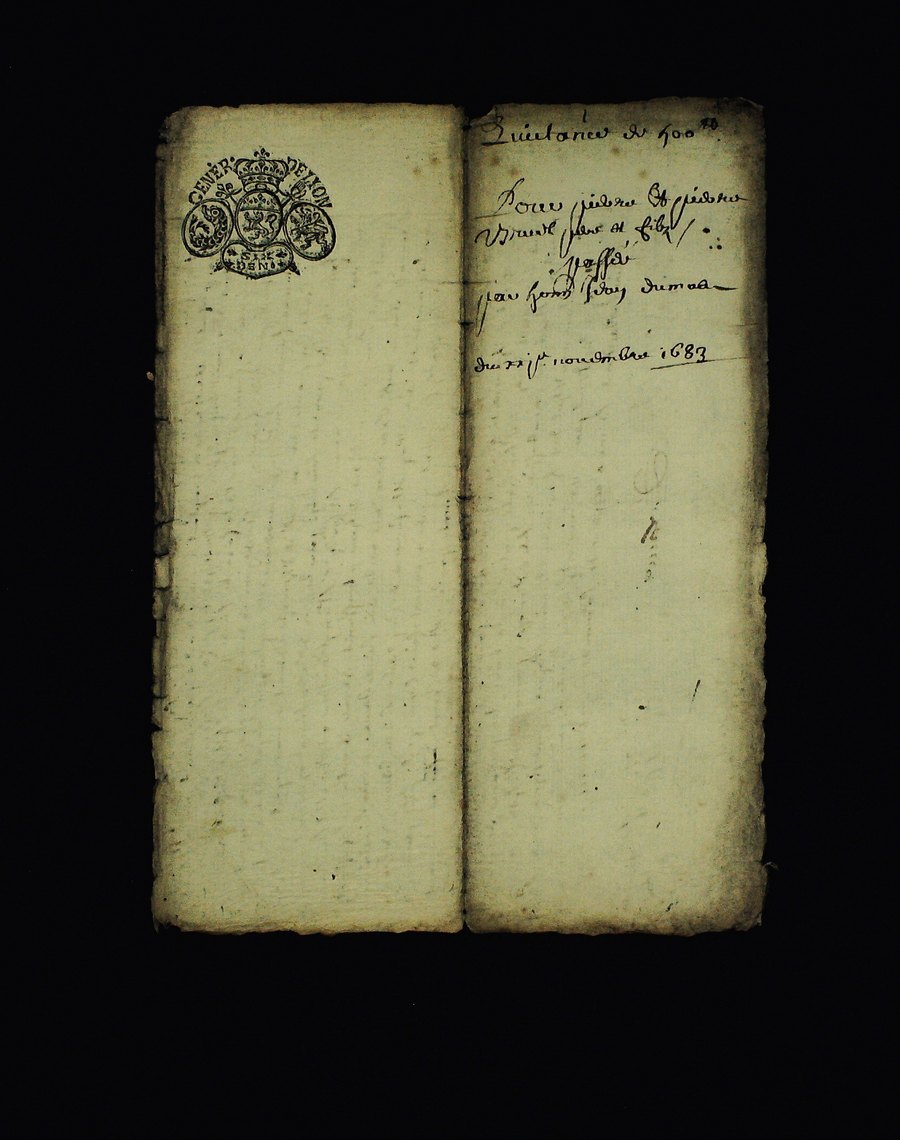 GENER· DE LYON
SIX
DENI
Quictance de 500 ##
Pour pierre Et pierre
pere et filz /
passée
par Jean dumas
du xxjᵉ novembre 1683